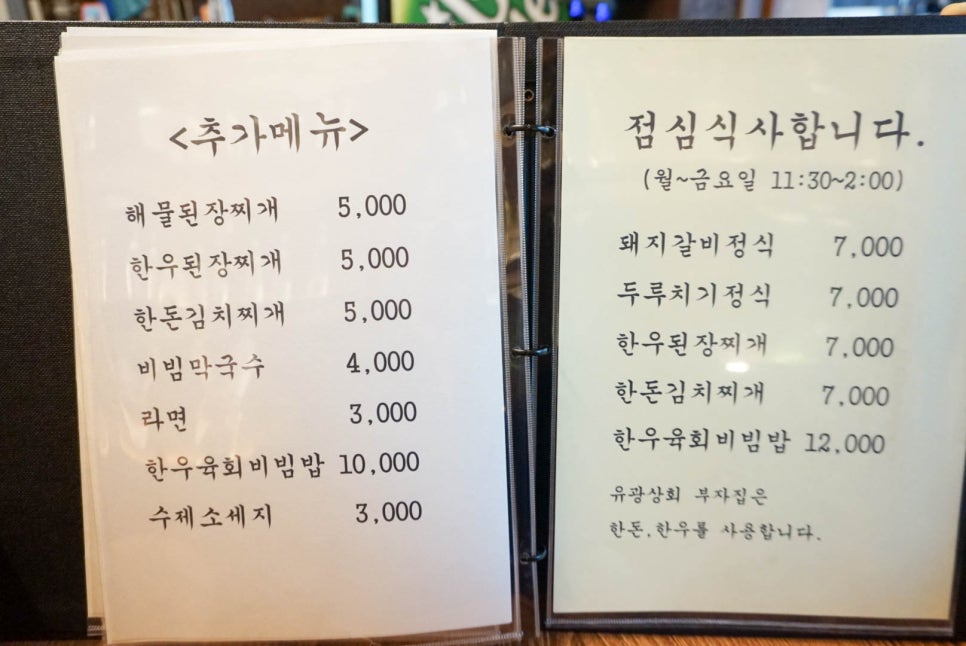 <추가메뉴>
해물된장찌개 5,000
한우된장찌개 5,000
한돈김치찌개 5,000
비빔막국수 4,000
라면 3,000
한우육회비빔밥 10,000
수제소세지 3,000
점심식사합니다.
(월~금요일 11:30~2:00)
돼지갈비정식 7,000
두루치기정식 7,000
한우된장찌개 7,000
한돈김치찌개 7,000
한우육회비빔밥 12,000
유광상회 부자집은
한돈,한우를 사용합니다.